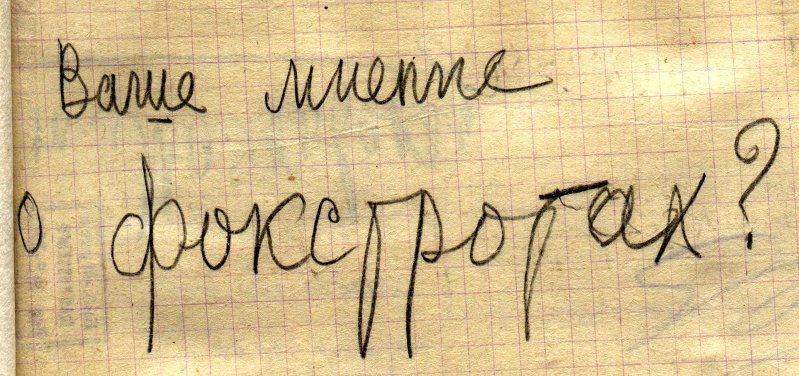 Ваше мнение
о фокстротах?